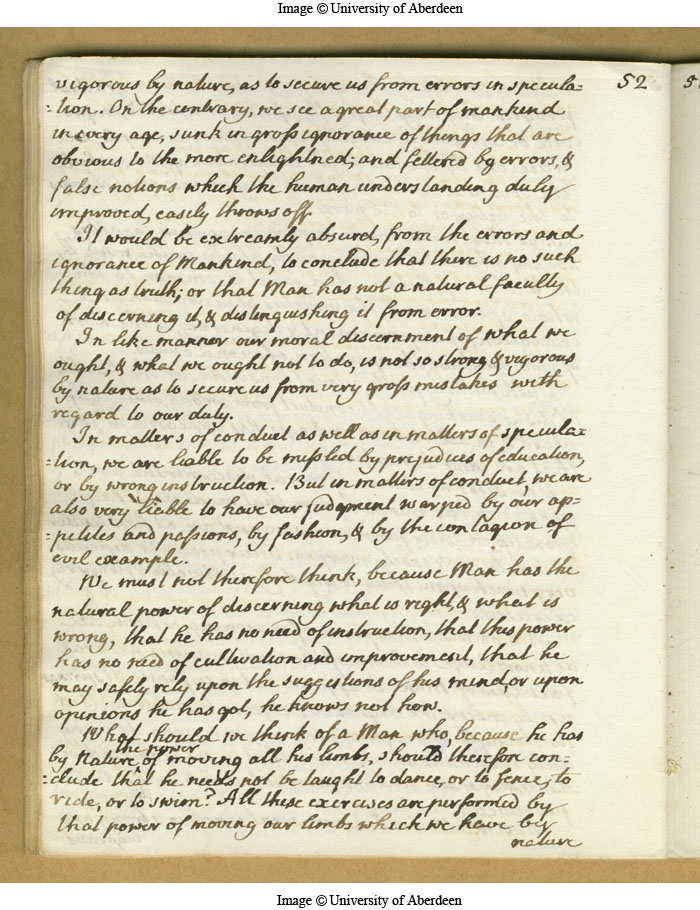 Image © University of Aberdeen
52
vigorous by nature, as to secure us from errors in specula=
=tion. On the contrary, we see a great part of mankind
in every age, sunk in gross ignorance of things that are
obvious to the more enlightned; and fettered by errors, &
false notions which the human understanding duly
improved, easily throws off.
It would be extreamly absurd, from the errors and
ignorance of Mankind, to conclude that there is no such
thing as truth; or that Man has not a natural faculty
of discerning it, & distinguishing it from error.
In like manner our moral discernment of what we
ought, & what we ought not to do, is not so strong & vigorous
by nature as to secure us from very gross mistakes with
regard to our duty.
In matters of conduct as well as in matters of specula=
=tion, we are liable to be missled by prejudices of education,
or by wrong instruction. But in matters of conduct, we are
also very liable to have our judgment warped by our ap=
=petites and passions, by fashion, & by the contagion of
evil example.
We must not therefore think, because Man has the
natural power of discerning what is right, & what is
wrong, that he has no need of instruction, that this power
has no need of cultivation and improvement, that he
may safely rely upon the suggestions of his mind, or upon
opinions he has got, he knows not how.
What should we think of a Man who, because he has
the power
by Nature of moving all his limbs, should therefore con=
=clude that he needs not be taught to dance, or to fence, to
ride, or to swim? All these exercises are performed by
that power of moving our limbs which we have by
nature
Image © University of Aberdeen